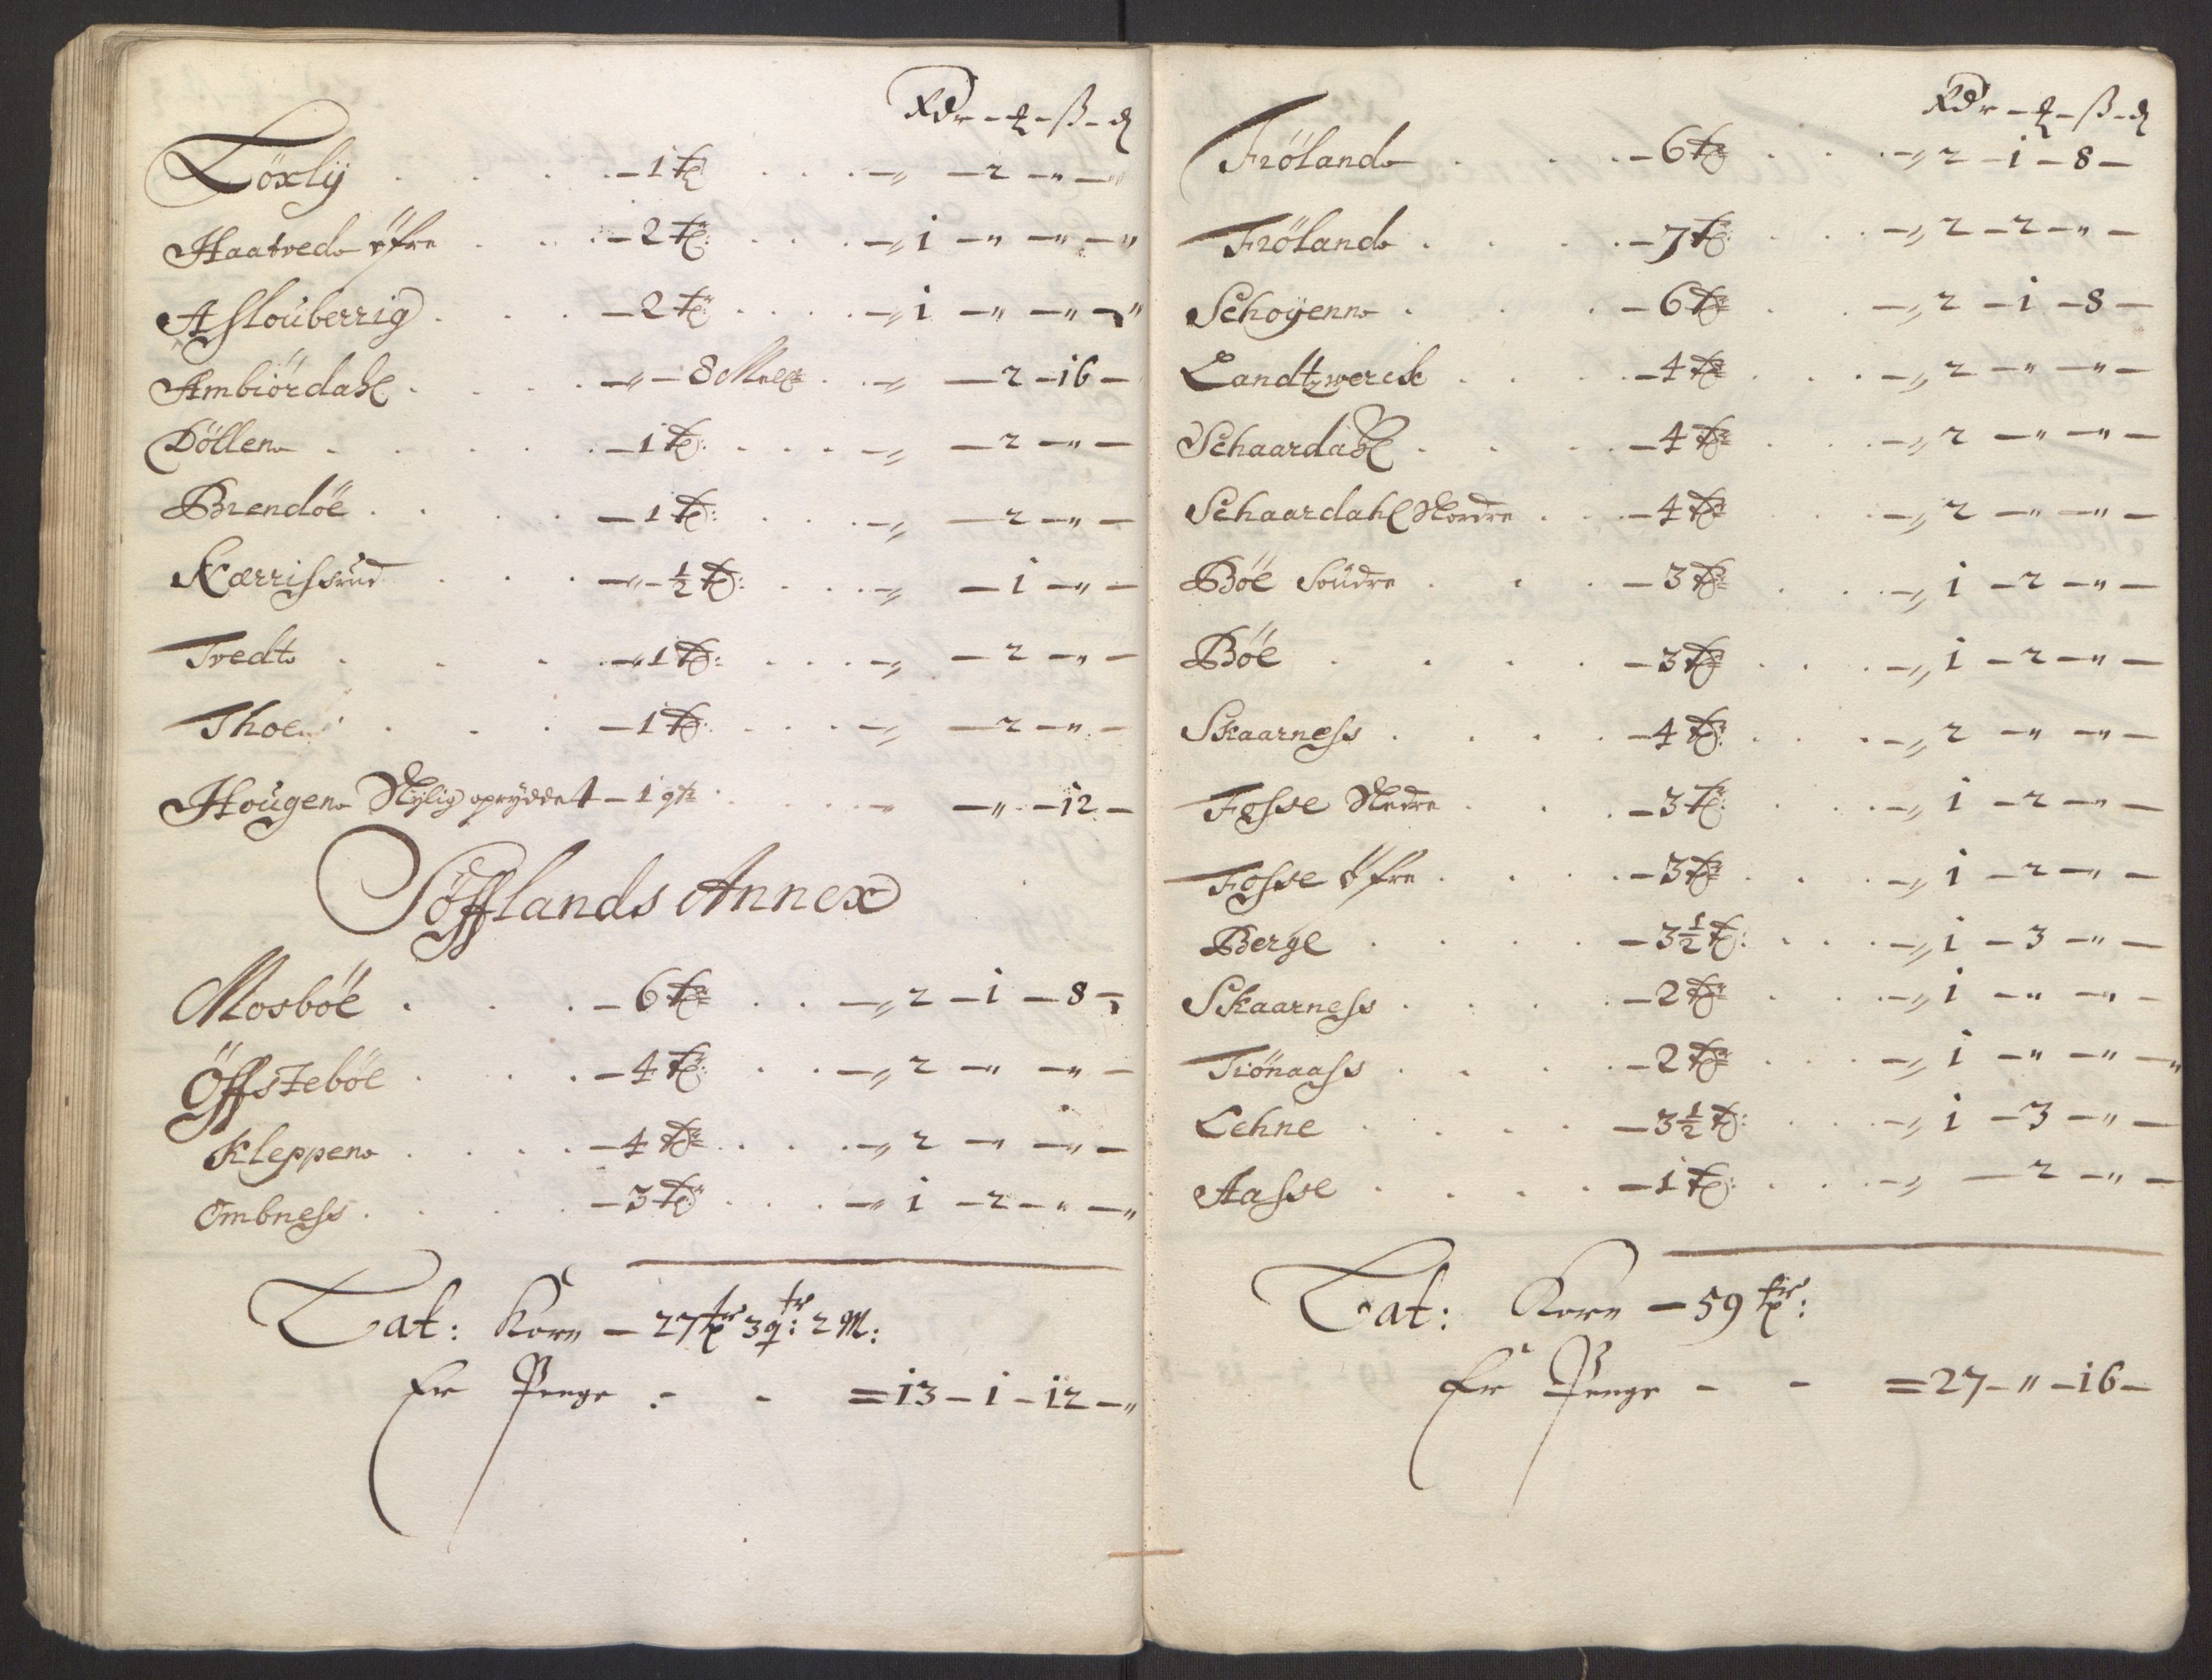 Rdr - ₰ - ß - ₰
Löxlÿ - 1 tr - „ - 2 - „ -
Haatved öfre - 2 tr: - „ 1 - „ - „ - „
Aslouberrig - 2 tr - „ 1 - „ - „ - „
Ambiördahl - „ - 8 Mel - „ - 2 - 16 -
Döllen - 1 tr: - „ - 2 - „ -
Brendöe - 1 tr: - „ - 2 - „ -
Kærrissrud - „ - ½ tr: - „ - 1 - „ -
Tvedt - „ 1 tr: - „ - 2 - „ -
Thoen - 1 tr: - „ - 2 - „ -
Hougen Nylig oprÿddet - 1 qtr - „ - „ - 12 -
Söfflands Annex
Mosböe - 6 tr - „ 2 - 1 - 8 -
Öffsteböe - 4 tr: - „ 2 - „ - „ -
Kleppen - 4 tr - „ 2 - „ - „ -
Ombness - 3 tr - „ 1 - 2 - „ - „
Lat: Korn - 27 tr 3 qtr: 2 M:
Er Penge : - - = 13 - 1 - 12 - „
Rdr - ₰ - ß - ₰
Fröland - 6 tr - „ 2 - 1 - 8 -
Fröland - 7 tr: - „ 2 - 2 - „ -
Schoÿenn - 6 tr - „ 2 - 1 - 8 -
Landtzwerck - 4 tr - „ 2 - „ - „ -
Schaardahl - 4 tr - „ 2 - „ - „ -
Schaardahl Nordre - 4 tr - „ 2 - „ - „ -
Böe Soudre - 3 tr - „ 1 - 2 - „ -
Böe - 3 tr - „ 1 - 2 - „ -
Skaarness - 4 tr: - „ 2 - „ - „ -
Fosse Nedre - 3 tr: - „ 1 - 2 - „ -
Fosse öfre - 3 tr - „ 1 - 2 - „ -
Berge - 3½ tr: - „ 1 - 3 - „ -
Skaarness - 2 tr - „ 1 - „ - „ -
Tiönaass - 2 tr - „ 1 - „ - „ - „
Lehne - 3½ tr: - „ 1 - 3 - „ -
Aasse - 1 tr: - „ - 2 - „ -
Lat: Korn - 59 tr:
Er Penge - - = 27 - „ - 16 -